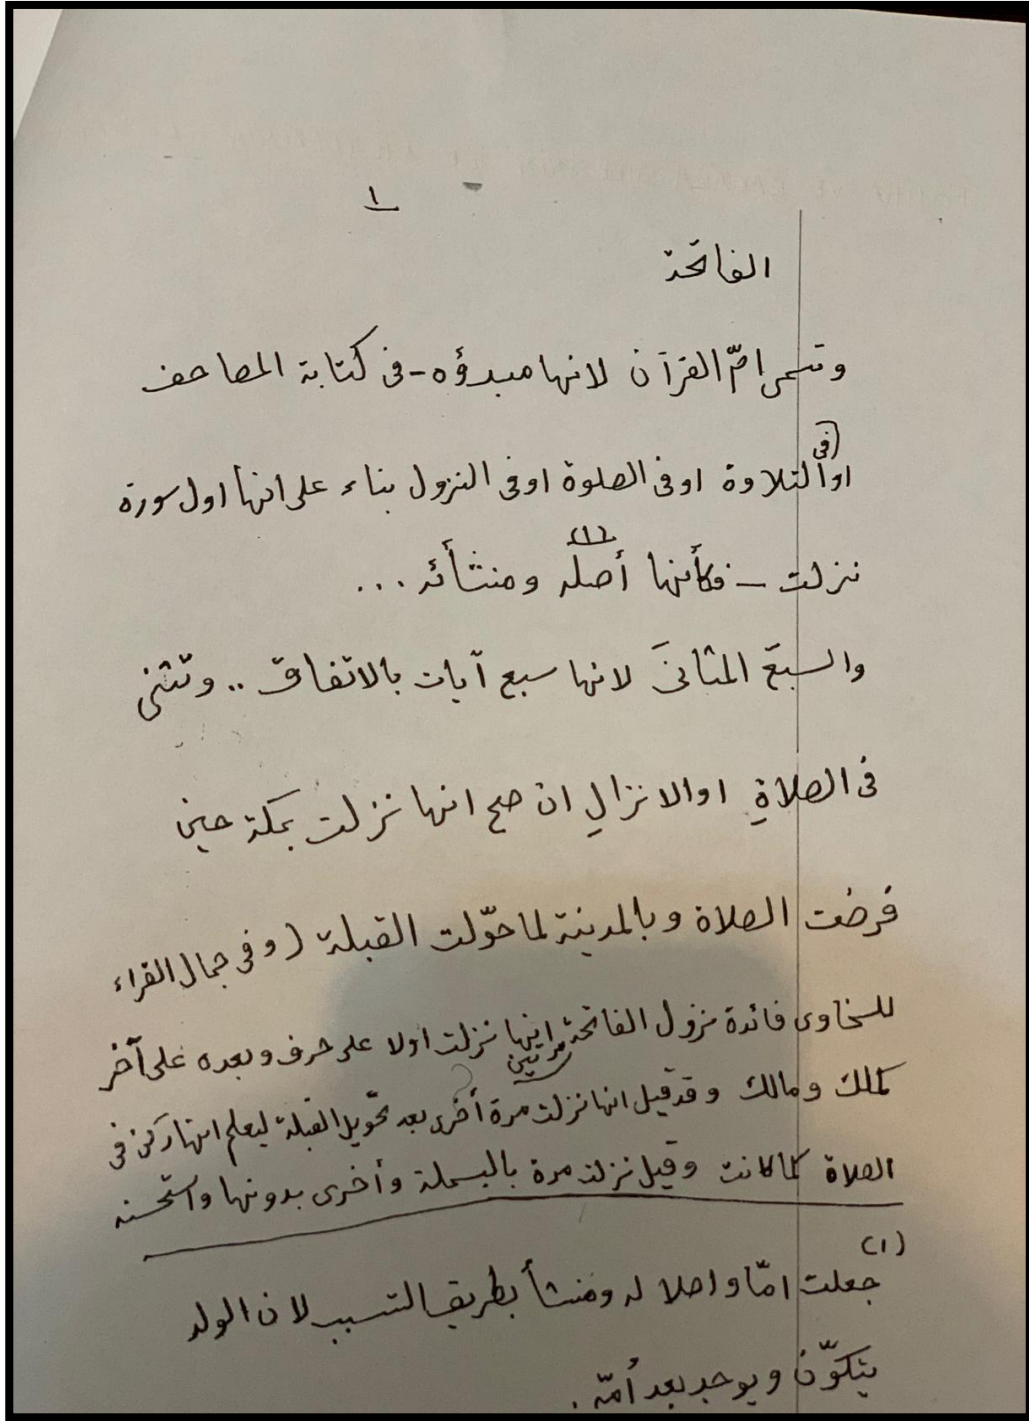 ١
الفاتحة
وتسمى امّ القرآن لانها مبدؤه - فى كتابة المصاحف
(فى)
او التلاوة او فى الصلوة او فى النزول بناء على انها اول سورة
(١)
نزلت – فكأنها أصله ومنشأئه ...
والسبعَ المثانىَ لانها سبع آيات بالاتفاق .. وتثنى
فى الصلاةِ او الانزالِ ان صح انها نزلت بمكة حين
فرضت الصلاة وبالمدينة لما حوّلت القبلة (وفى جمال القراء
للسخاوى فائدة نزول الفاتحة مرتين انها نزلت اولا على حرف وبعده على آخر
كملك ومالك وقد قيل انها نزلت مرة أخرى بعد تحويل القبلة ليعلم انها ركن فى
الصلاة كما كانت وقيل نزلت مرة بالبسملة وأخرى بدونها واستحسنه
(١)
جعلت امّا واصلا له ومنشأ بطريق التسبب لان الولد
يتكوّن ويوجد بعد أمّه .